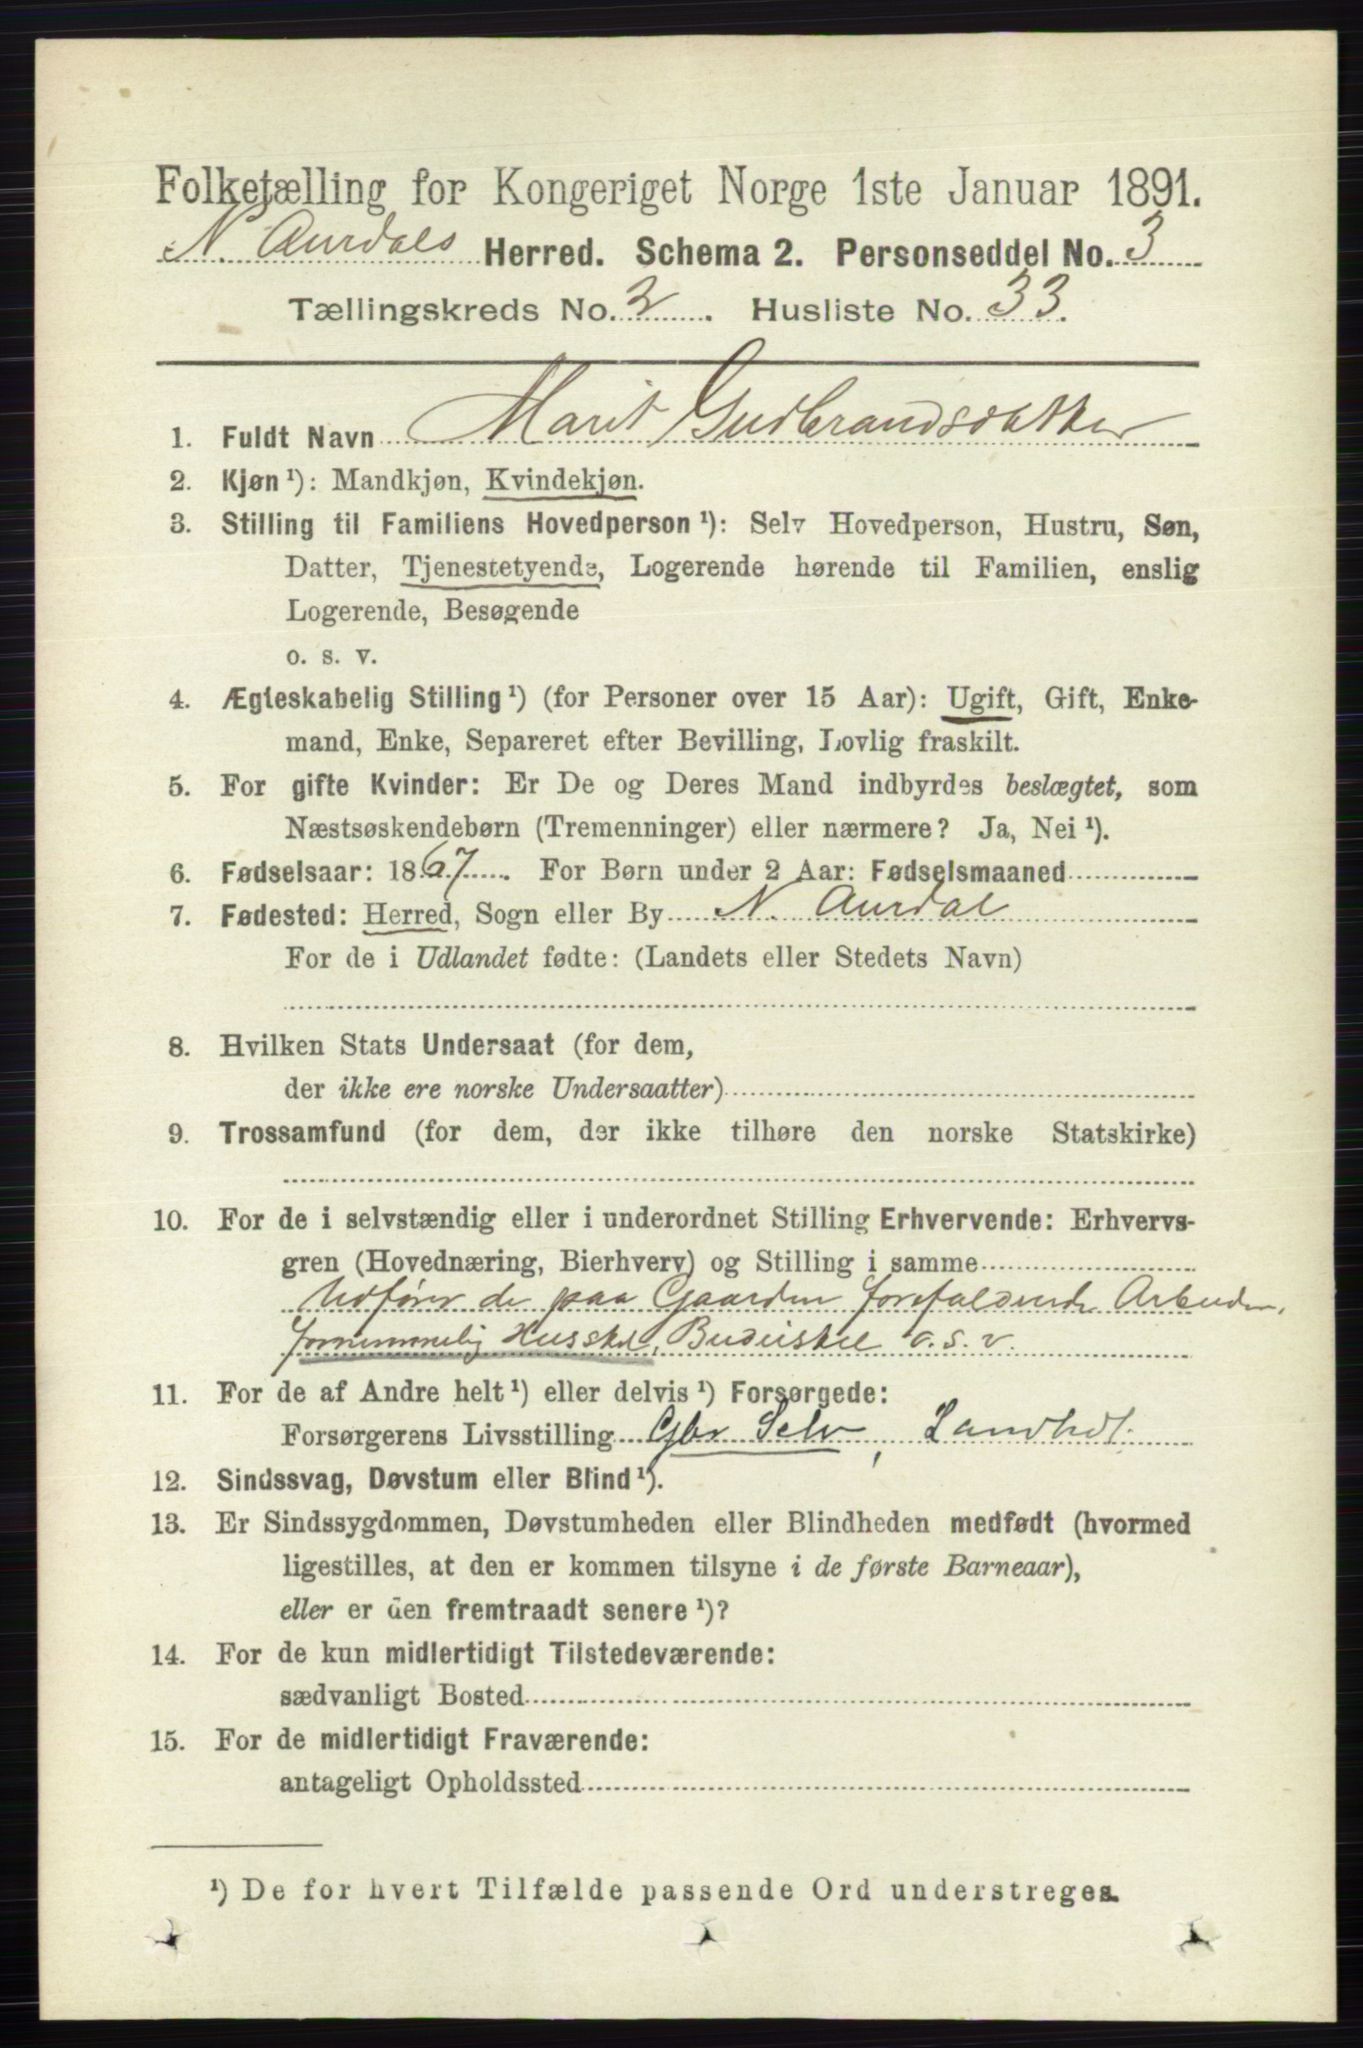 Folketælling for Kongeriget Norge 1ste Januar 1891.
N. Aurdals Herred. Schema 2. Personseddel No. 3
Tællingskreds No. 2. Husliste No. 33.
1. Fuldt Navn Marit Gudbrandsdatter
2. Kjøn ¹): Mandkjøn, Kvindekjøn.
3. Stilling til Familiens Hovedperson ¹): Selv Hovedperson, Hustru, Søn,
Datter, Tjenestetyende, Logerende hørende til Familien, enslig
Logerende, Besøgende
o. s. v.
4. Ægteskabelig Stilling ¹) (for Personer over 15 Aar): Ugift, Gift, Enke-
mand, Enke, Separeret efter Bevilling, Lovlig fraskilt.
5. For gifte Kvinder: Er De og Deres Mand indbyrdes beslægtet, som
Næstsøskendebørn (Tremenninger) eller nærmere? Ja, Nei ¹).
6. Fødselsaar: 1867. For Børn under 2 Aar: Fødselsmaaned
7. Fødested: Herred, Sogn eller By N. Aurdal
For de i Udlandet fødte: (Landets eller Stedets Navn)
8. Hvilken Stats Undersaat (for dem,
der ikke ere norske Undersaatter)
9. Trossamfund (for dem, der ikke tilhøre den norske Statskirke)
10. For de i selvstændig eller i underordnet Stilling Erhvervende: Erhvervs-
gren (Hovednæring, Bierhverv) og Stilling i samme
Udfører de paa Gaarden forefaldende Arbeider,
fornemmelig Husstel, Budeistel o. s. v.
11. For de af Andre helt ¹) eller delvis ¹) Forsørgede:
Forsørgerens Livsstilling Gbr Selv, Landhdl.
12. Sindssvag, Døvstum eller Blind ¹).
13. Er Sindssygdommen, Døvstumheden eller Blindheden medfødt (hvormed
ligestilles, at den er kommen tilsyne i de første Barneaar),
eller er den fremtraadt senere ¹)?
14. For de kun midlertidigt Tilstedeværende:
sædvanligt Bosted
15. For de midlertidigt Fraværende:
antageligt Opholdssted
¹) De for hvert Tilfælde passende Ord understreges.